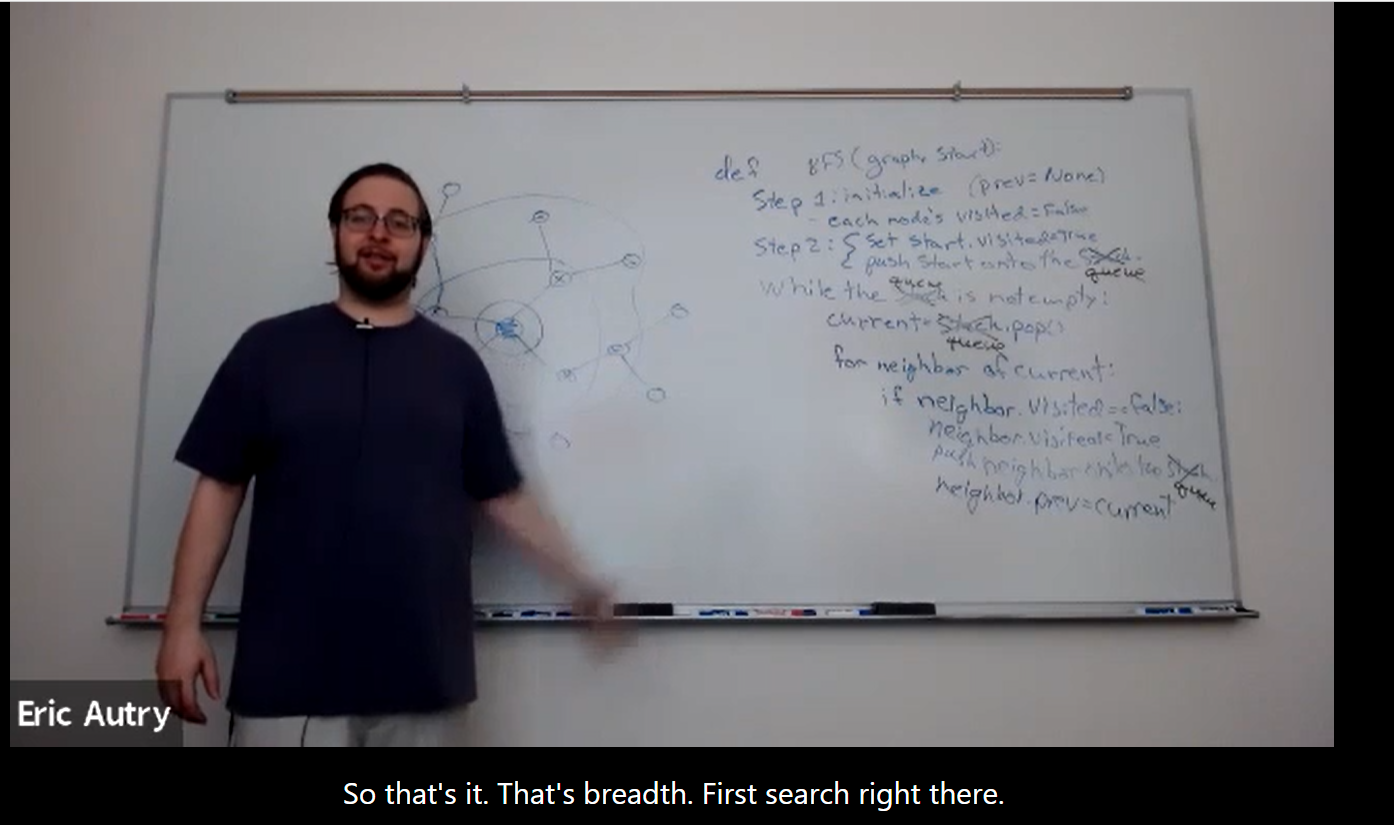 def BFS(graph, start):
Step 1: initialize (prev=None)
- each node's visited=False
Step 2: { set start.visited=True
{ push start onto the stack.
queue
queue
while the stack is not empty:
current=stack.pop()
queue
for neighbor of current:
if neighbor.visited==False:
neighbor.visited=True
push neighbor onto the stack.
queue
neighbor.prev=current
Eric Autry
So that's it. That's breadth. First search right there.